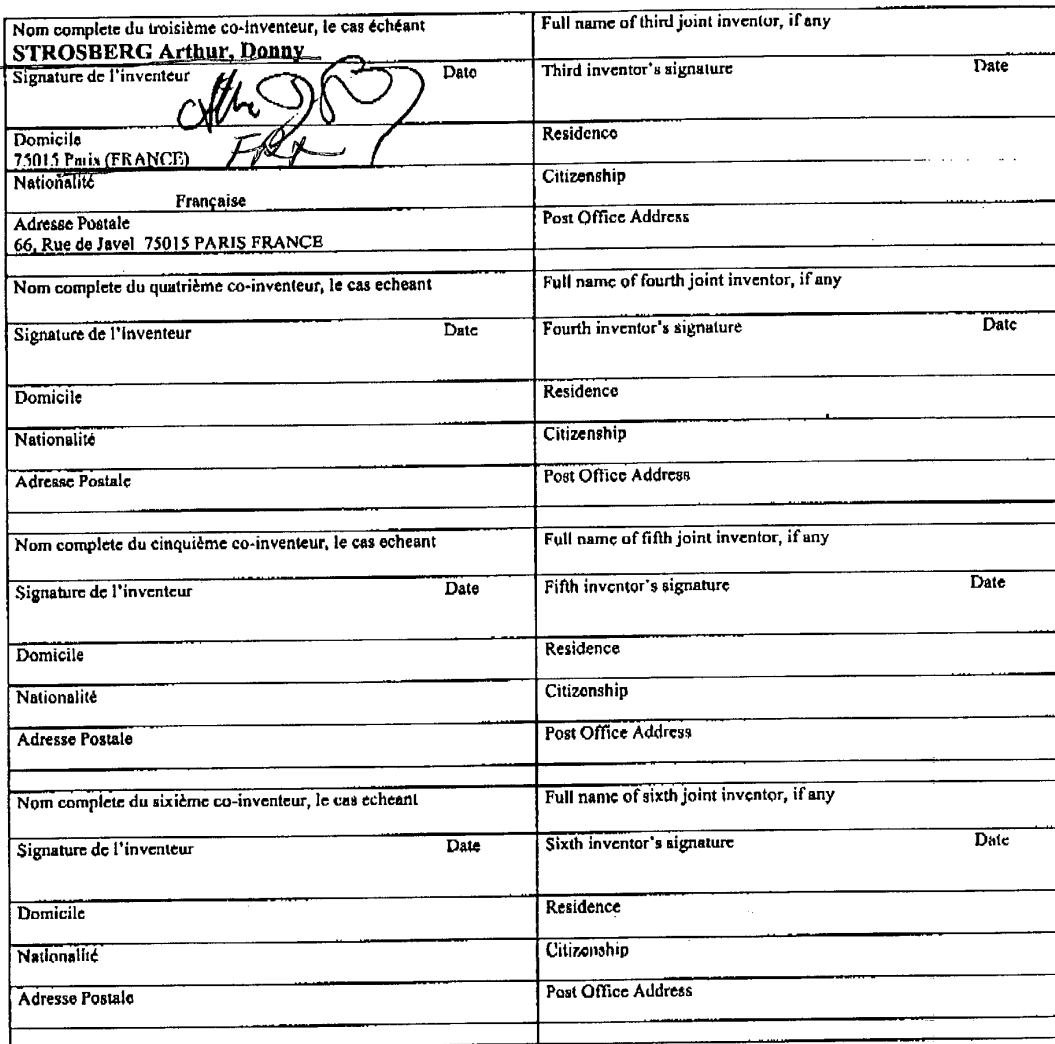 Nom complete du troisième co-inventeur, le cas échéant Full name of third joint inventor, if any
STROSBERG Arthur, Donny
Signature de l'inventeur Date Third inventor's signature Date
Domicile Residence
75015 Paris (FRANCE) FRX
Nationalité Citizenship
Française
Adresse Postale Post Office Address
66, Rue de Javel 75015 PARIS FRANCE
Nom complete du quatrième co-inventeur, le cas echeant Full name of fourth joint inventor, if any
Signature de l'inventeur Date Fourth inventor's signature Date
Domicile Residence
Nationalité Citizenship
Adresse Postale Post Office Address
Nom complete du cinquième co-inventeur, le cas echeant Full name of fifth joint inventor, if any
Signature de l'inventeur Date Fifth inventor's signature Date
Domicile Residence
Nationalité Citizenship
Adresse Postale Post Office Address
Nom complete du sixième co-inventeur, le cas echeant Full name of sixth joint inventor, if any
Signature de l'inventeur Date Sixth inventor's signature Date
Domicile Residence
Nationalité Citizenship
Adresse Postale Post Office Address